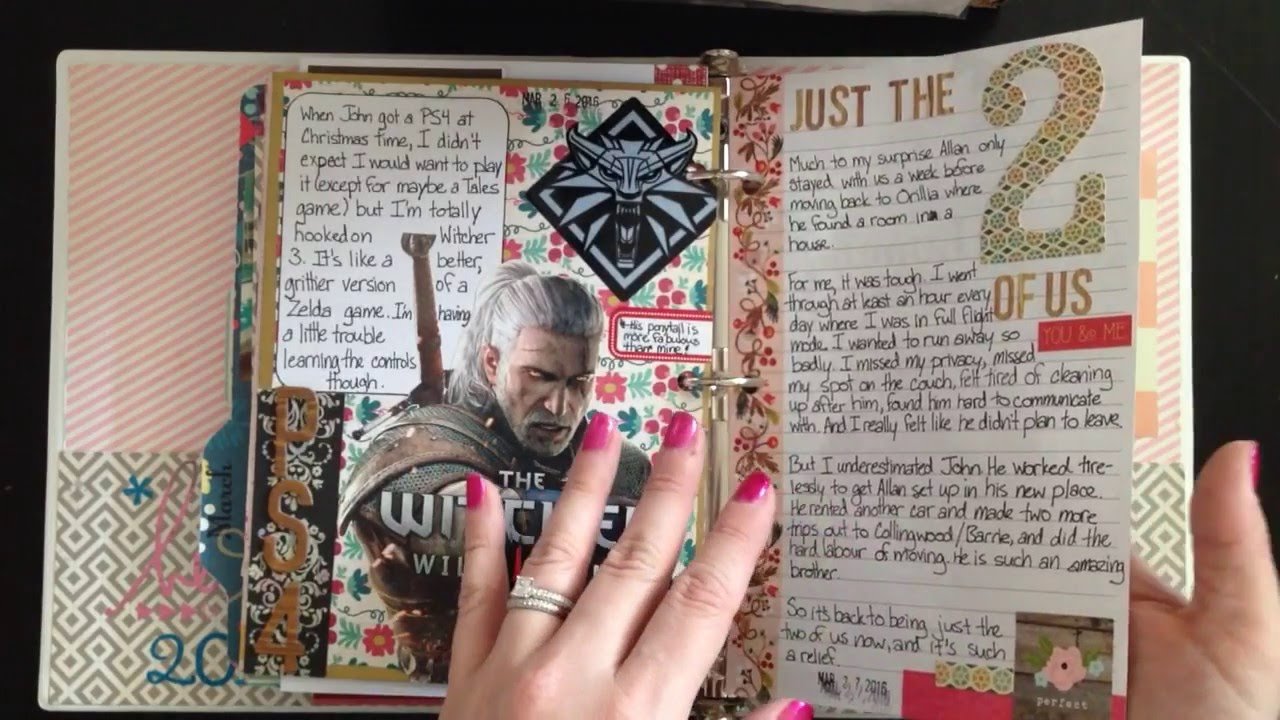 When John got a PS4 at
Christmas time, I didn't
expect I would want to play
it (except for maybe a Tales
game) but I'm totally
hooked on Witcher
3. It's like a better,
grittier version of a
Zelda game. I'm having
a little trouble
learning the controls
though.
MAR 2 6 2016
*His ponytail is
more fabulous
than mine*
PS4
THE
WITCHER
WIL
March
20
JUST THE
2
OF US
YOU & ME
Much to my surprise Allan only
stayed with us a week before
moving back to Orillia where
he found a room in a
house.
For me, it was tough. I went
through at least an hour every
day where I was in full flight
mode. I wanted to run away so
badly. I missed my privacy, missed
my spot on the couch, felt tired of cleaning
up after him, found him hard to communicate
with. And I really felt like he didn't plan to leave.
But I underestimated John. He worked tire-
lessly to get Allan set up in his new place.
He rented another car and made two more
trips out to Collingwood/Barrie, and did the
hard labour of moving. He is such an amazing
brother.
So it's back to being just the
two of us now, and it's such
a relief.
MAR 2 7 2016
perfect